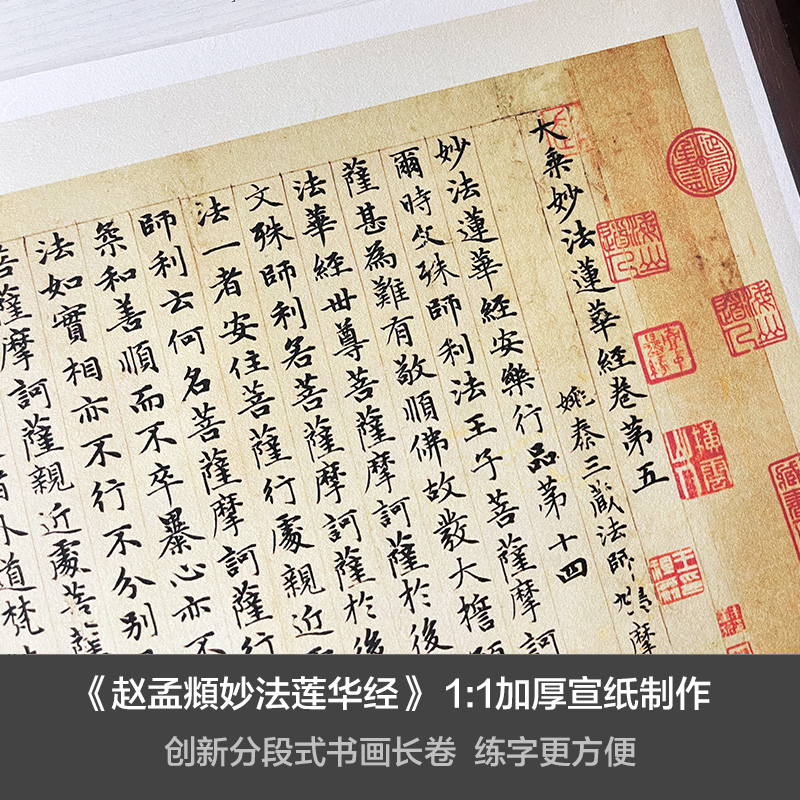 大乗妙法蓮華經卷第五
姚秦三藏法師鳩摩
妙法蓮華經安樂行品第十四
爾時文殊師利法王子菩薩摩訶
薩甚為難有敬順佛故發大誓願
法華經世尊菩薩摩訶薩於後
文殊師利若菩薩摩訶薩於後
法一者安住菩薩行處親近
師利云何名菩薩摩訶薩行
柔和善順而不卒暴心亦不
法如實相亦不行不分別
菩薩摩訶薩親近處菩薩
外道梵
《赵孟頫妙法莲华经》 1:1加厚宣纸制作
创新分段式书画长卷 练字更方便